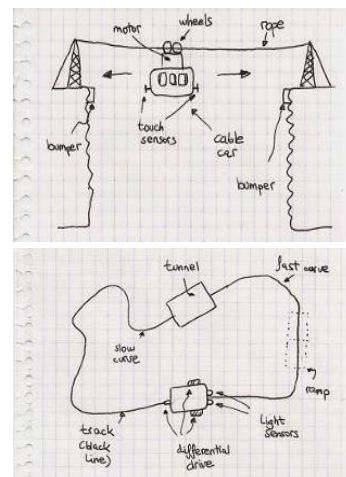 wheels
motor
rope
touch
sensors
cable
car
bumper
bumper
tunnel
fast curve
slow
curve
ramp
track
(black
line)
differential
drive
light
sensors